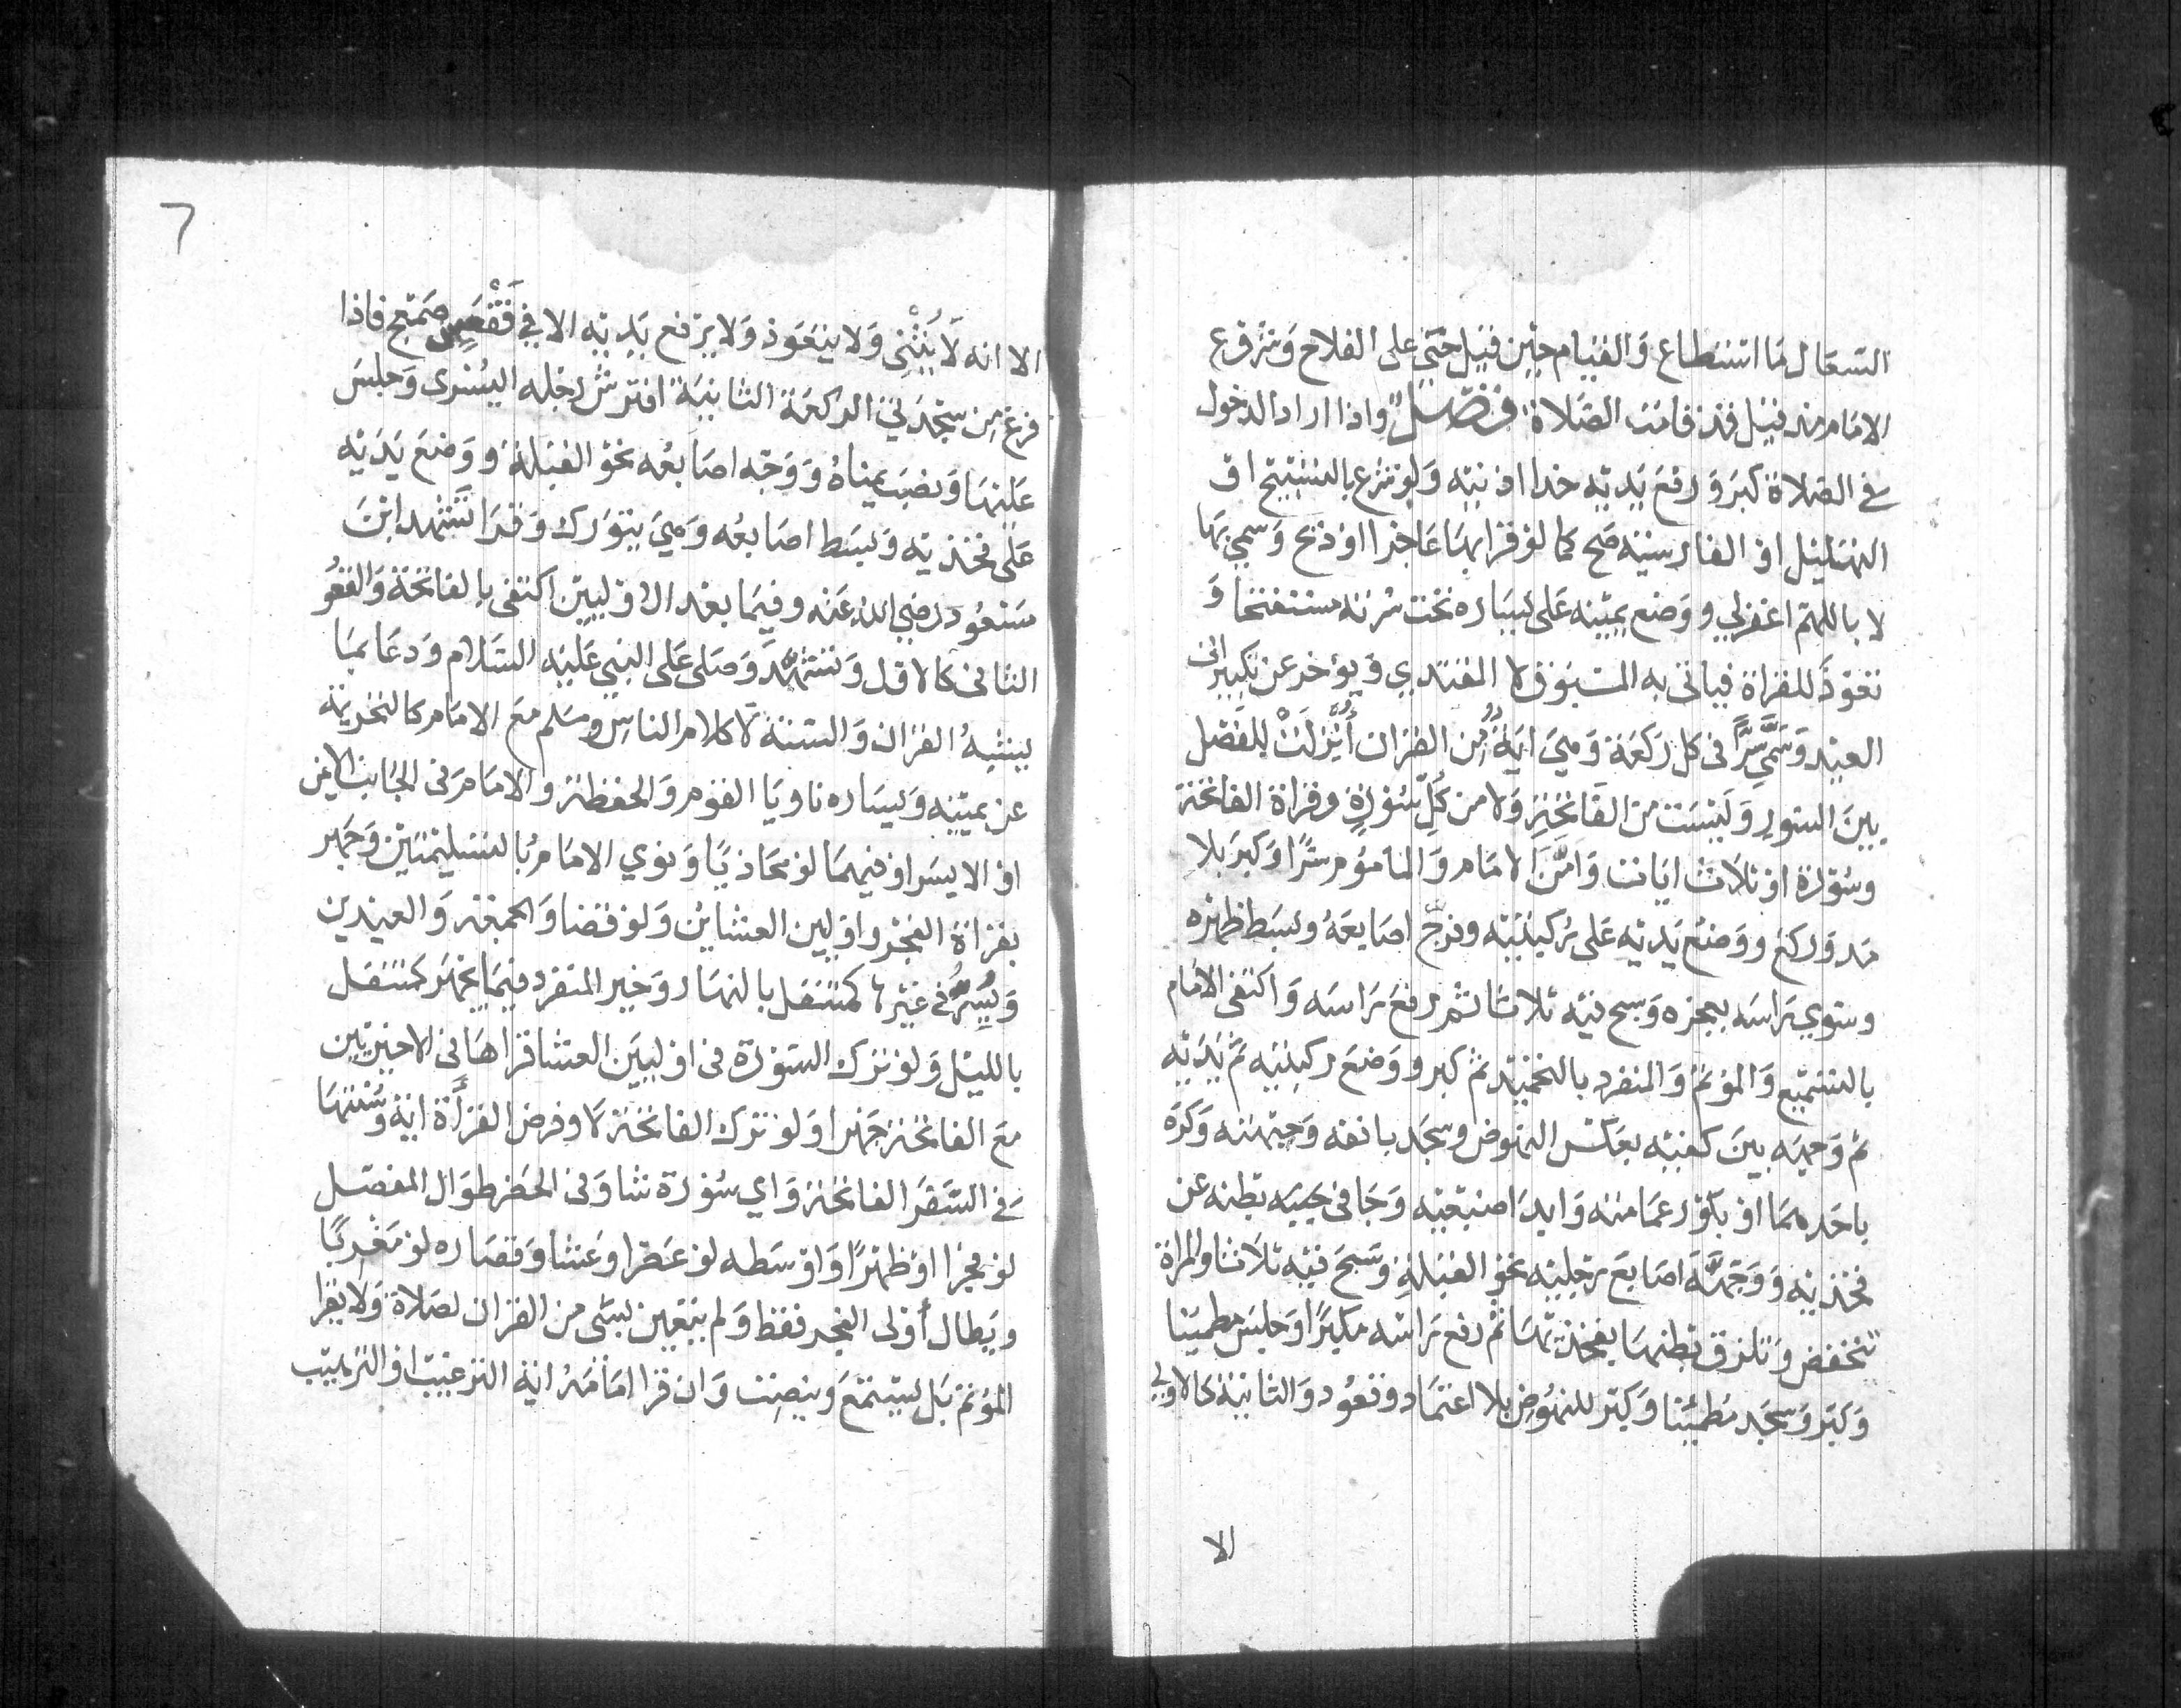 السعال ما استطاع والقيام حين قيل حي على الفلاح وشروع
الامام مذ قيل قد قامت الصلاة فصل واذا اراد الدخول
في الصلاة كبر ورفع يديه حذا اذنيه ولو شرع بالتسبيح او
التهليل او الفارسية صح كما لو قرا بها عاجزا او ذبح وسمي بها
لا باللهم اغفرلي ووضع يمينه على يساره تحت سرته مستفتحا و
تعوذ للقراة فياتى به المسبوق لا المقتدي ويؤخر عن تكبيرات
العيد وَسَمَّي سِرًّا فى كل ركعة وهي اية من القران أُنْزِلَتْ للفصل
بين السور وليست من الفاتحة ولا من كل سورة وقراة الفاتحة
وسورة او ثلاث ايات وامَّن الامام والمأموم سرًّا وكبر بلا
مد وركع ووضع يديه على ركبتيه وفرج اصابعه وبسط ظهره
وسوي راسه بعجزه وسبح فيه ثلاثا ثم رفع راسه واكتفى الامام
بالتسميع والمؤتم والمنفرد بالتحميد ثم كبر ووضع ركبتيه ثم يديه
ثم وجهه بين كفيه بعكس النهوض وسجد بانفه وجبهته وكره
باحدهما او بكور عمامته وابدا ضبعيه وجافى بطنه عن
فخذيه ووجَّه اصابع رجليه نحو القبلة وسبح فيه ثلاثا والمراة
تنخفض وتلزق بطنها بفخذيها ثم رفع راسه مكبرًا وجلس مطمينا
وكبر وسجد مطمئنا وكبر للنهوض بلا اعتماد وقعود والثانية كالاولي
الا
٦
الا انه لا يُثْنِى ولا يتعوذ ولا يرفع يديه الا في فَقْعَس صمعج فاذا
فرغ من سجدتي الركعة الثانية افترش رجله اليسرى وجلس
عليها ونصب يمناه ووجه اصابعه نحو القبلة ووضع يديه
على فخذيه وبسط اصابعه وهي تتورك وقرا تشهد ابن
مسعود رضي الله عنه وفيما بعد الاوليين اكتفى بالفاتحة والقعود
الثانى كالاول وتشهد وصلى على النبي عليه السلام ودعا بما
يشبه القران والسنة لا كلام الناس وسلم مع الامام كالتحريمة
عن يمينه ويساره ناويا القوم والحفظة والامام فى الجانب الايمن
او الايسر او فيهما لو محاذيا ونوي الامام بالتسليمتين وجهر
بقراة الفجر واوليين العشاين ولو قضا والجمعة والعيدين
ويُسِرُّ في غيرها كمتنفل بالنهار وخير المنفرد فيما يجهر كمتنفل
بالليل ولو ترك السورة فى اوليين العشا قراها فى الاخيرتين
مع الفاتحة جهرا ولو ترك الفاتحة لا وفرض القرأة اية وسنتها
في السفر الفاتحة واي سورة شا وفى الحضر طوال المفصل
لو فجرا او ظهرًا واوسطه لو عصرا وعشا وقصاره لو مغربًا
ويطال أولى الفجر فقط ولم يتعين لشى من القران لصلاة ولا يقرا
المؤتم بل يستمع وينصت وان قرا امامه اية الترغيب او الترهيب